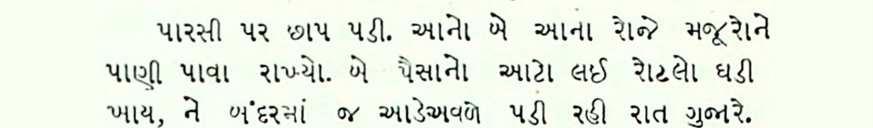 પારસી પર છાપ પડી. આનો બે આના રોજે મજૂરોને
પાણી પાવા રાખ્યો. બે પૈસાનો આટો લઈ રોટલો ઘડી
ખાય, ને બંદરમાં જ આડેઅવળે પડી રહી રાત ગુજારે.